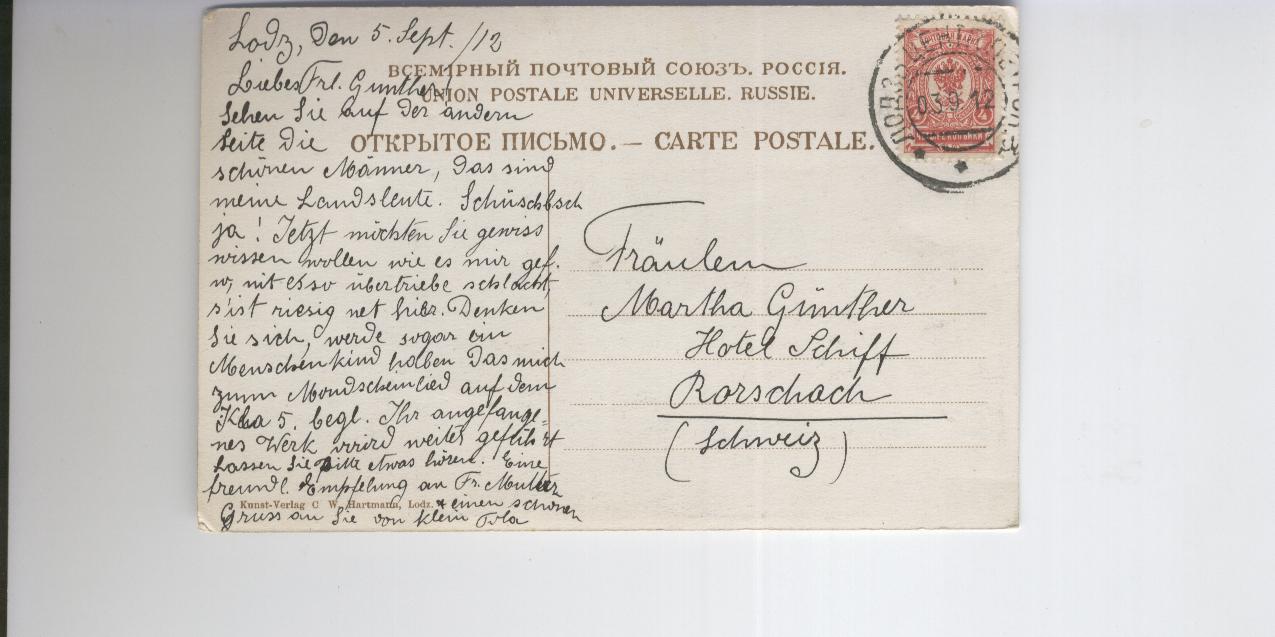 Lodz, den 5. Sept. /12
ВСЕМІРНЫЙ ПОЧТОВЫЙ СОЮЗЪ. РОССІЯ.
UNION POSTALE UNIVERSELLE. RUSSIE.
ОТКРЫТОЕ ПИСЬМО. — CARTE POSTALE.
Liebes Frl. Günther!
Sehen Sie auf der andern
Seite die
schönen Männer, das sind
meine Landsleute.
ja! Jetzt möchten Sie gewiss
wissen wollen wie es mir gef.
nit so übertriebe schlächt,
s'ist riesig net hier. Denken
Sie sich, werde sogar ein
Menschenkind haben das mich
zum Mondscheinlied auf dem
begl. Ihr angefange=
nes Werk wird weiter geführt
Lassen Sie bitte etwas hören. Eine
freundl. Empfelung an Fr. Mutter
Kunst-Verlag C. W. Hartmann, Lodz.
+ einen schönen
Gruss an Sie von klein
Fräulein
Martha Günther
Hotel Schiff
Rorschach
(Schweiz)
ПОЧТОВАЯ МАРКА
03 9 12